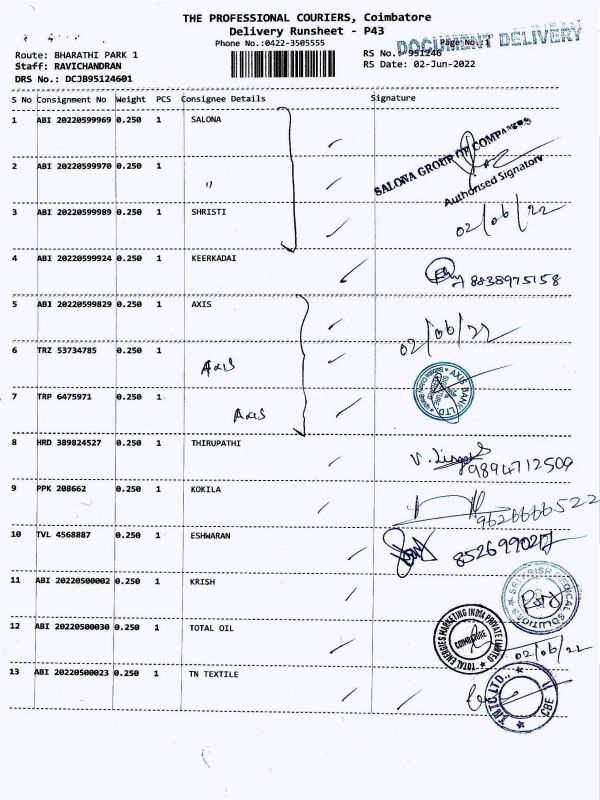 THE PROFESSIONAL COURIERS, Coimbatore
Delivery Runsheet - P43
Phone No.:0422-3505555
Page No.: 1
DOCUMENT DELIVERY
Route: BHARATHI PARK 1
RS No.: 951246
Staff: RAVICHANDRAN
RS Date: 02-Jun-2022
DRS No.: DCJB95124601
S No Consignment No Weight PCS Consignee Details Signature
1 ABI 20220599969 0.250 1 SALONA
SALONA GROUP OF COMPANIES
2 ABI 20220599970 0.250 1 "
Authorised Signatory
3 ABI 20220599989 0.250 1 SHRISTI
02/06/22
4 ABI 20220599924 0.250 1 KEERKADAI
8838975158
5 ABI 20220599829 0.250 1 AXIS
02/06/22
6 TRZ 53734785 0.250 1
Axis
AXIS BANK LTD.
7 TRP 6475971 0.250 1
Axis
8 HRD 389824527 0.250 1 THIRUPATHI
9894712509
9 PPK 208662 0.250 1 KOKILA
9626666522
10 TVL 4568887 0.250 1 ESHWARAN
11 ABI 20220500002 0.250 1 KRISH
SRI KRISH MEDICAL SOLUTIONS
12 ABI 20220500030 0.250 1 TOTAL OIL
TOTAL ENERGIES MARKETING INDIA PRIVATE LIMITED
COIMBATORE
02/06/22
13 ABI 20220500023 0.250 1 TN TEXTILE
TNTC LTD.,
CBE